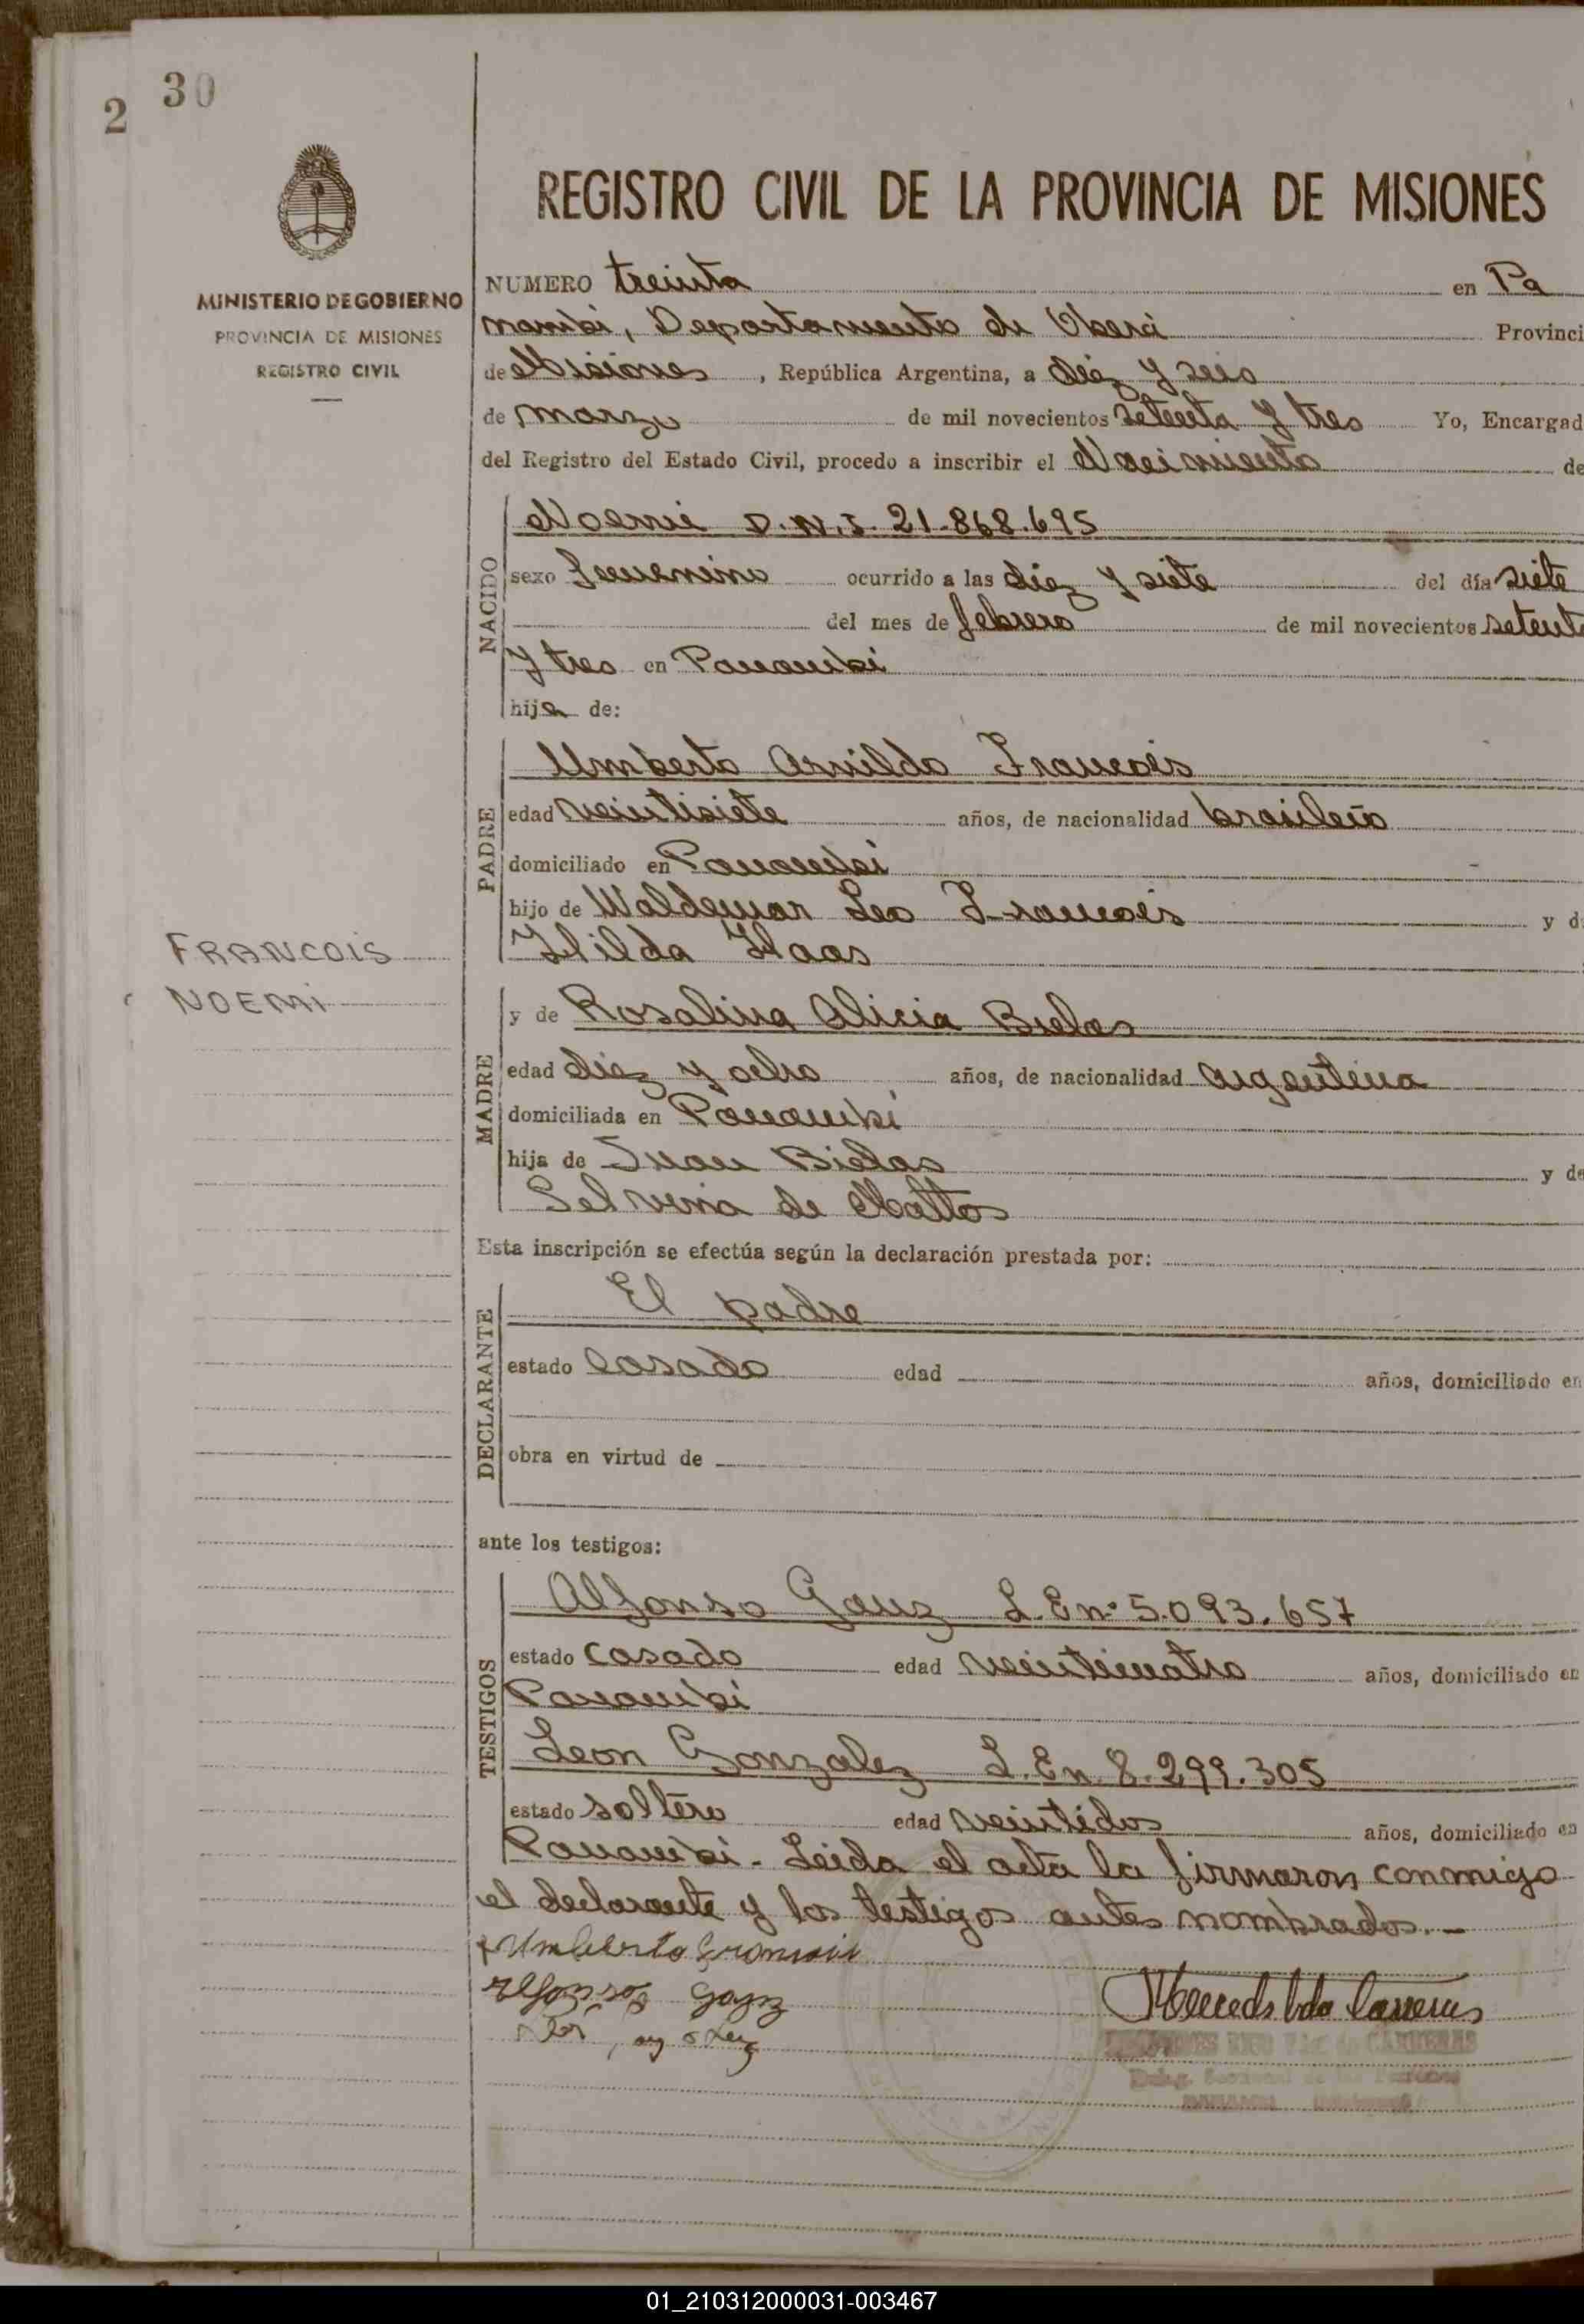 2
30
MINISTERIO DE GOBIERNO
PROVINCIA DE MISIONES
REGISTRO CIVIL
REGISTRO CIVIL DE LA PROVINCIA DE MISIONES
NUMERO treinta en Pa
nambi, Departamento de Oberá Provinci
de Misiones, República Argentina, a diez y seis
de marzo de mil novecientos setenta y tres Yo, Encargad
del Registro del Estado Civil, procedo a inscribir el Nacimiento de
NACIDO
Noemi D.N.I. 21.868.695
sexo femenino ocurrido a las diez y siete del día siete
del mes de febrero de mil novecientos setent
y tres en Panambi
hija de:
PADRE
Umberto Arnildo Francois
edad veintisiete años, de nacionalidad brasileño
domiciliado en Panambi
hijo de Waldemar Leo Francois y d
Hilda Haas
FRANCOIS
NOEMI
MADRE
y de Rosalina Alicia Bielas
edad diez y ocho años, de nacionalidad argentina
domiciliada en Panambi
hija de Juan Bielas y de
Selvina de Mattos
Esta inscripción se efectúa según la declaración prestada por:
DECLARANTE
El padre
estado casado edad años, domiciliado en
obra en virtud de
ante los testigos:
TESTIGOS
Alfonso Ganz L.E nº 5.093.657
estado casado edad veinticuatro años, domiciliado en
Panambi
Leon Gonzalez L.E n 8.299.305
estado soltero edad veintidos años, domiciliado en
Panambi - Leida el acta la firmaron conmigo
el declarante y los testigos antes nombrados.-
Umberto Francois
Alfonso Ganz
01_210312000031-003467